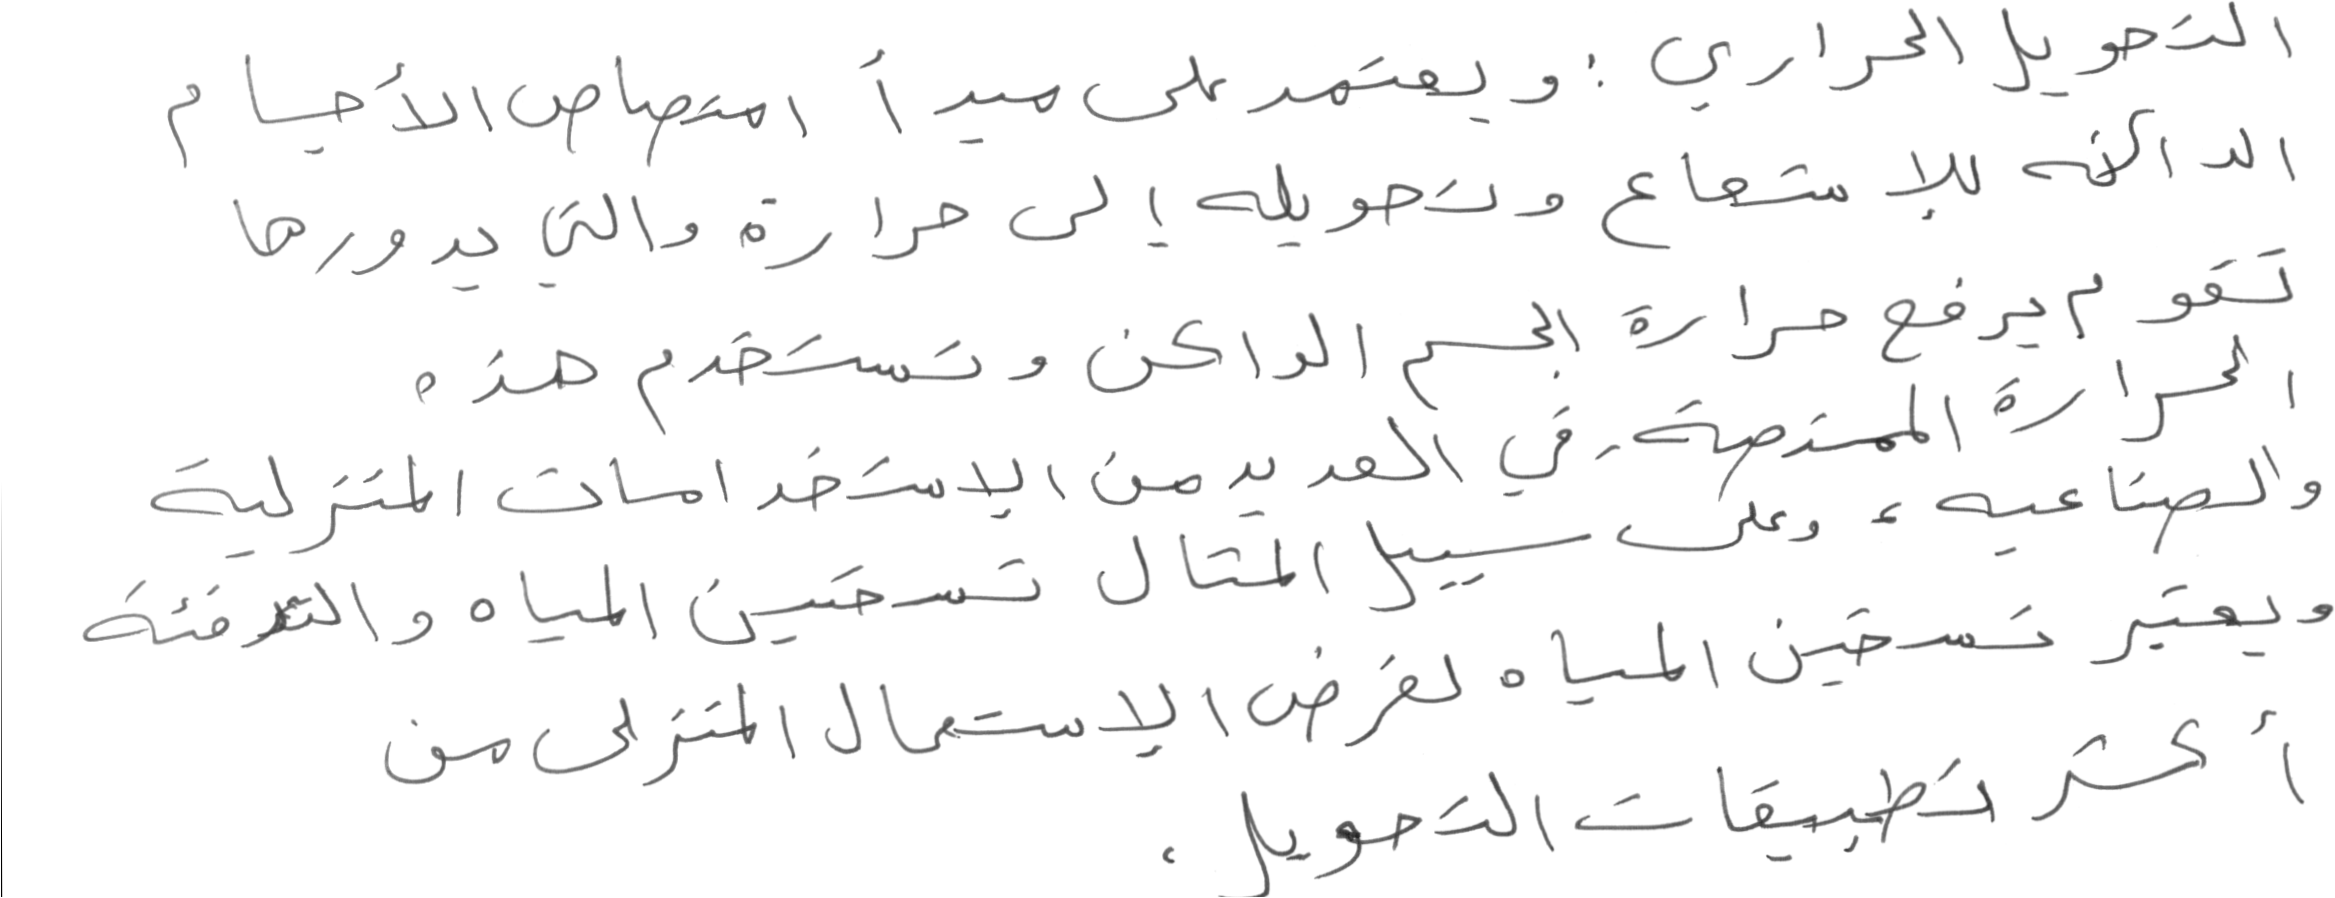 التحويل الحراري : ويعتمد على مبدأ امتصاص الأجسام
الداكنه للإشعاع وتحويله إلى حرارة والتي بدورها
تقوم برفع حرارة الجسم الداكن وتستخدم هذه
الحرارة الممتصة في العديد من الاستخدامات المنزلية
والصناعيه ، وعلى سبيل المثال تسخين المياه والتدفئة
ويعتبر تسخين المياه لغرض الإستعمال المنزلى من
أكثر تطبيقات التحويل .